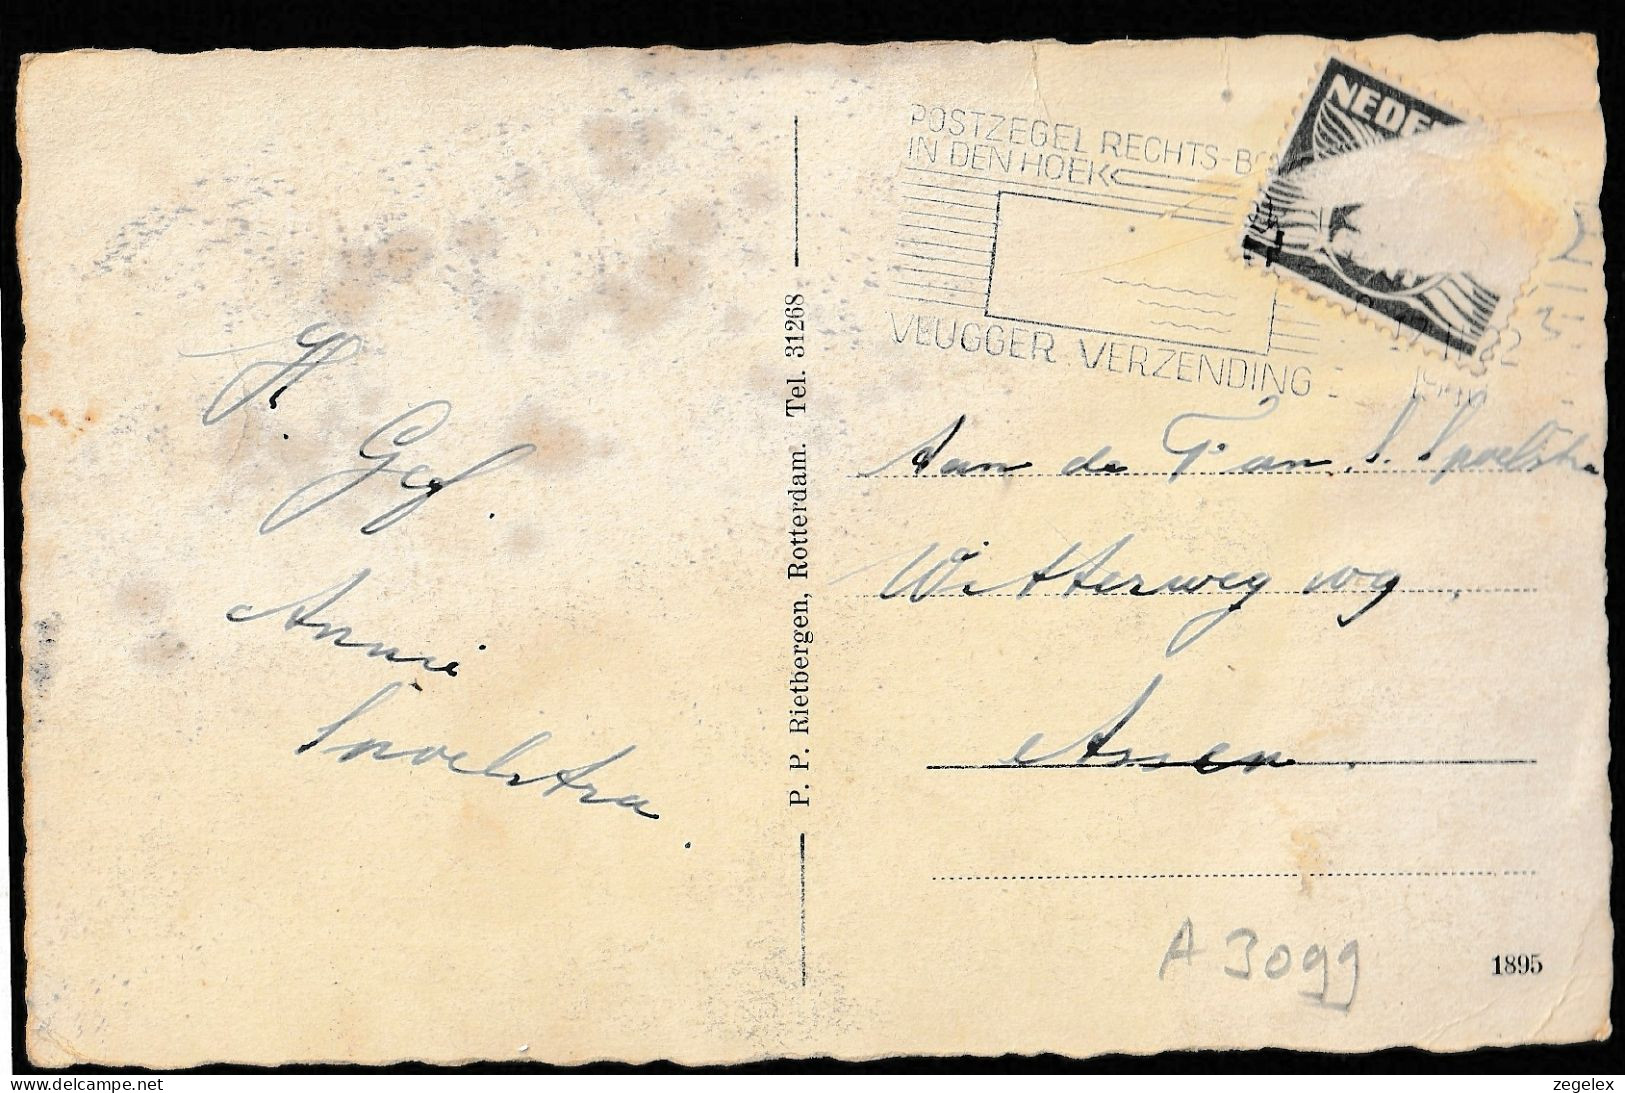 POSTZEGEL RECHTS-BO
IN DEN HOEK
VLUGGER VERZENDING
NEDE
H.
Gef.
Annie
Spoelstra.
P. P. Rietbergen, Rotterdam. Tel. 31268
Aan de Fam. S. Spoelstra
Witterweg 109,
Assen.
A 3099
1895
www.delcampe.net
zegelex